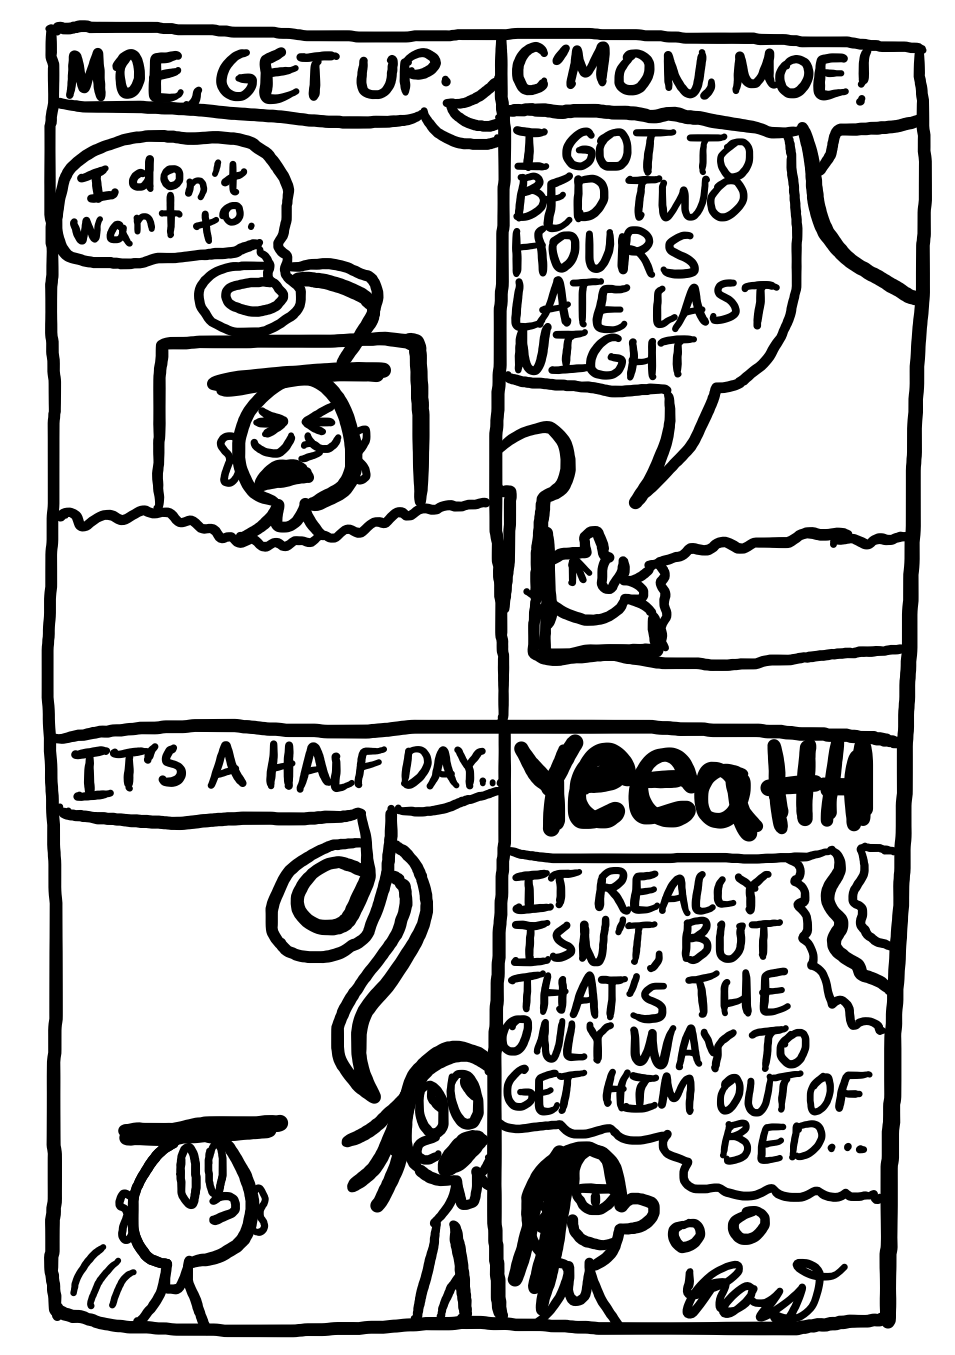 MOE, GET UP.
I don't
want to.
C'MON, MOE!
I GOT TO
BED TWO
HOURS
LATE LAST
NIGHT
IT'S A HALF DAY...
YeeaHHH
IT REALLY
ISN'T, BUT
THAT'S THE
ONLY WAY TO
GET HIM OUT OF
BED...